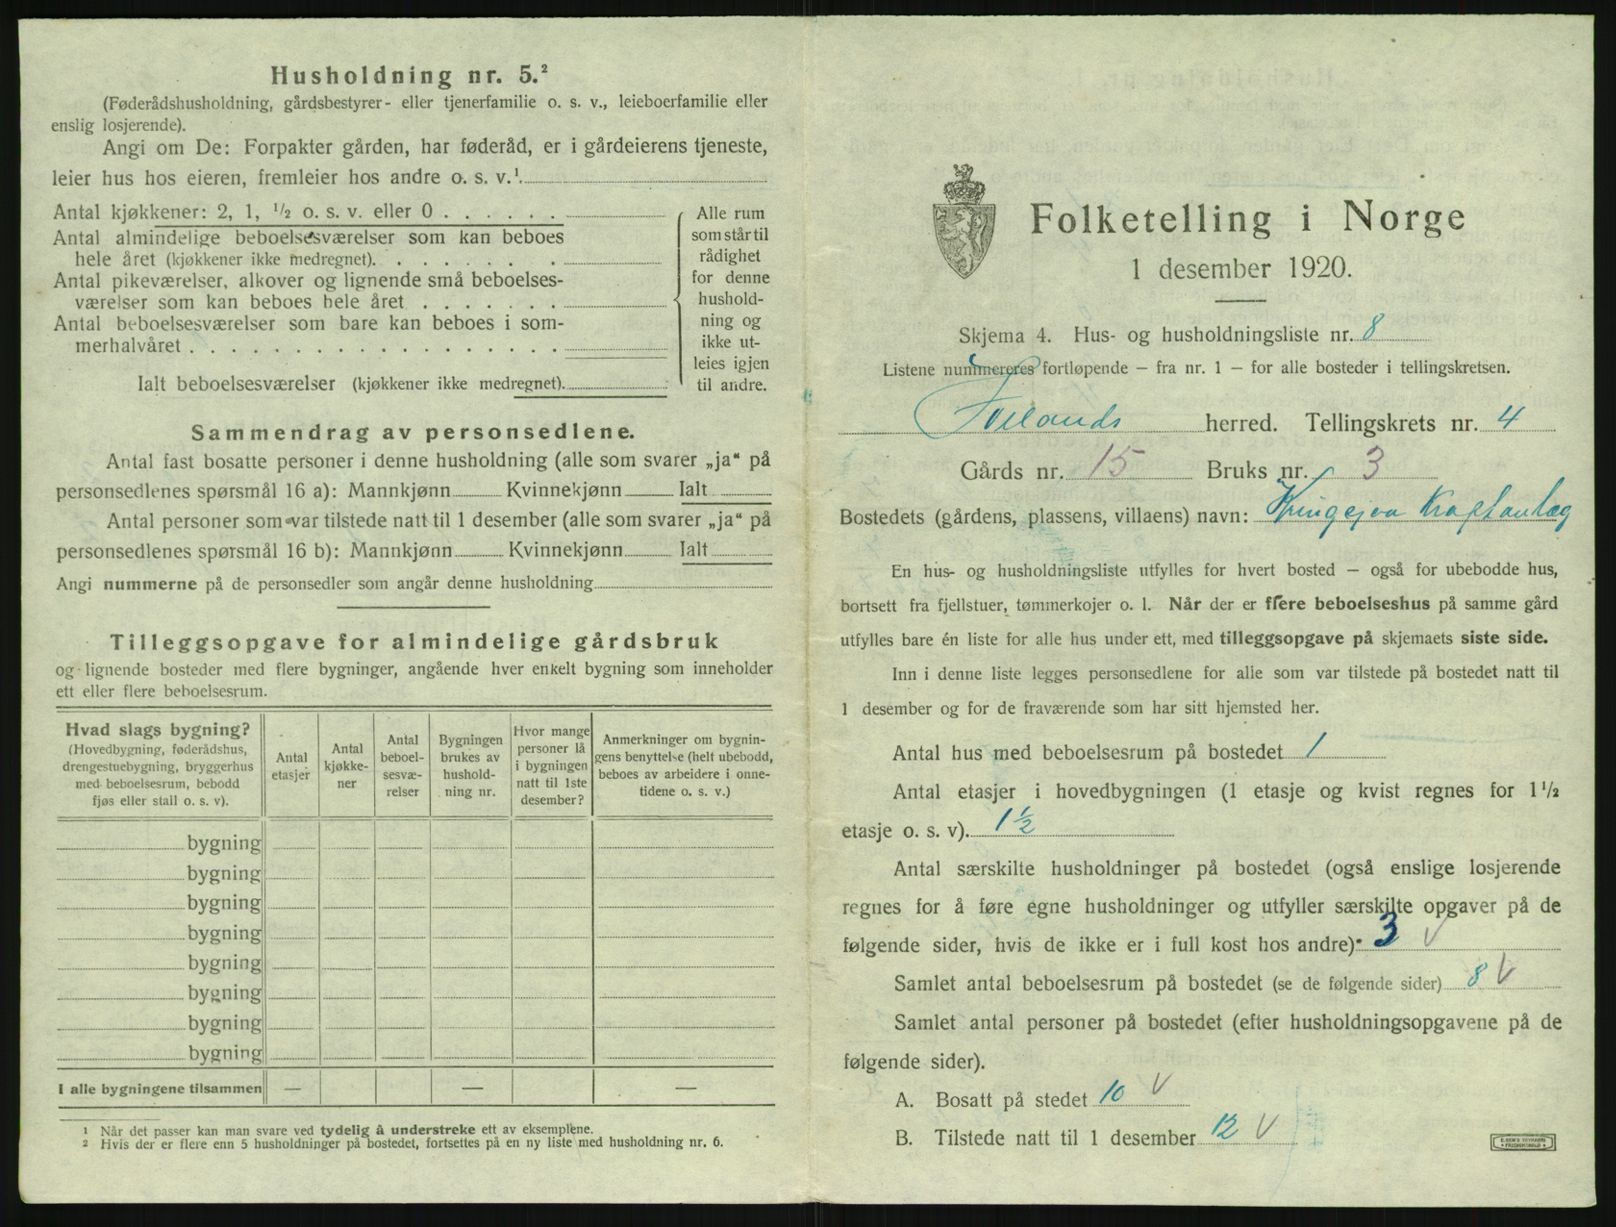 Husholdning nr. 5.²
(Føderådshusholdning, gårdsbestyrer- eller tjenerfamilie o. s. v., leieboerfamilie eller
enslig losjerende).
Angi om De: Forpakter gården, har føderåd, er i gårdeierens tjeneste,
leier hus hos eieren, fremleier hos andre o. s. v.¹
Antal kjøkkener: 2, 1, ½ o. s. v. eller 0 . . . . . .
Antal almindelige beboelsesværelser som kan beboes
hele året (kjøkkener ikke medregnet). . . . . . . .
Antal pikeværelser, alkover og lignende små beboelses-
værelser som kan beboes hele året . . . . . . .
Antal beboelsesværelser som bare kan beboes i som-
merhalvåret . . . . . . . . . . . . . . . . . .
Ialt beboelsesværelser (kjøkkener ikke medregnet).
Alle rum
som står til
rådighet
for denne
hushold-
ning og
ikke ut-
leies igjen
til andre.
Sammendrag av personsedlene.
Antal fast bosatte personer i denne husholdning (alle som svarer „ja“ på
personsedlenes spørsmål 16 a): Mannkjønn Kvinnekjønn Ialt
Antal personer som var tilstede natt til 1 desember (alle som svarer „ja“ på
personsedlenes spørsmål 16 b): Mannkjønn Kvinnekjønn Ialt
Angi nummerne på de personsedler som angår denne husholdning
Tilleggsopgave for almindelige gårdsbruk
og lignende bosteder med flere bygninger, angående hver enkelt bygning som inneholder
ett eller flere beboelsesrum.
Hvad slags bygning?
(Hovedbygning, føderådshus,
drengestuebygning, bryggerhus
med beboelsesrum, bebodd
fjøs eller stall o. s. v).
Antal
etasjer
Antal
kjøkke-
ner
Antal
beboel-
sesvæ-
relser
Bygningen
brukes av
hushold-
ning nr.
Hvor mange
personer lå
i bygningen
natt til 1ste
desember?
Anmerkninger om bygnin-
gens benyttelse (helt ubebodd,
beboes av arbeidere i onne-
tidene o. s. v.)
bygning
bygning
bygning
bygning
bygning
bygning
bygning
bygning
I alle bygningene tilsammen — — —
¹ Når det passer kan man svare ved tydelig å understreke ett av eksemplene.
² Hvis der er flere enn 5 husholdninger på bostedet, fortsettes på en ny liste med husholdning nr. 6.
Folketelling i Norge
1 desember 1920.
Skjema 4. Hus- og husholdningsliste nr. 8
Listene nummereres fortløpende — fra nr. 1 — for alle bosteder i tellingskretsen.
herred. Tellingskrets nr. 4
Gårds nr. 15 Bruks nr. 3
Bostedets (gårdens, plassens, villaens) navn: Kringsjaa Kraftanlæg
En hus- og husholdningsliste utfylles for hvert bosted — også for ubebodde hus,
bortsett fra fjellstuer, tømmerkojer o. l. Når der er flere beboelseshus på samme gård
utfylles bare én liste for alle hus under ett, med tilleggsopgave på skjemaets siste side.
Inn i denne liste legges personsedlene for alle som var tilstede på bostedet natt til
1 desember og for de fraværende som har sitt hjemsted her.
Antal hus med beboelsesrum på bostedet 1
Antal etasjer i hovedbygningen (1 etasje og kvist regnes for 1½
etasje o. s. v). 1½
Antal særskilte husholdninger på bostedet (også enslige losjerende
regnes for å føre egne husholdninger og utfyller særskilte opgaver på de
følgende sider, hvis de ikke er i full kost hos andre) 3 V
Samlet antal beboelsesrum på bostedet (se de følgende sider) 8 V
Samlet antal personer på bostedet (efter husholdningsopgavene på de
følgende sider).
A. Bosatt på stedet 10 V
B. Tilstede natt til 1 desember 12 V